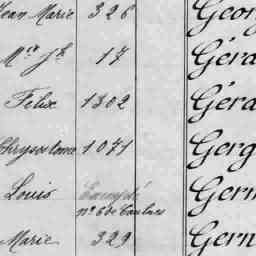 Jean Marie 326 Geor
Mce Jh 17 Géra
Felix 1302 Géra
Chrysostome 1071 Gerg
Louis Germ
Marie 329 Gern